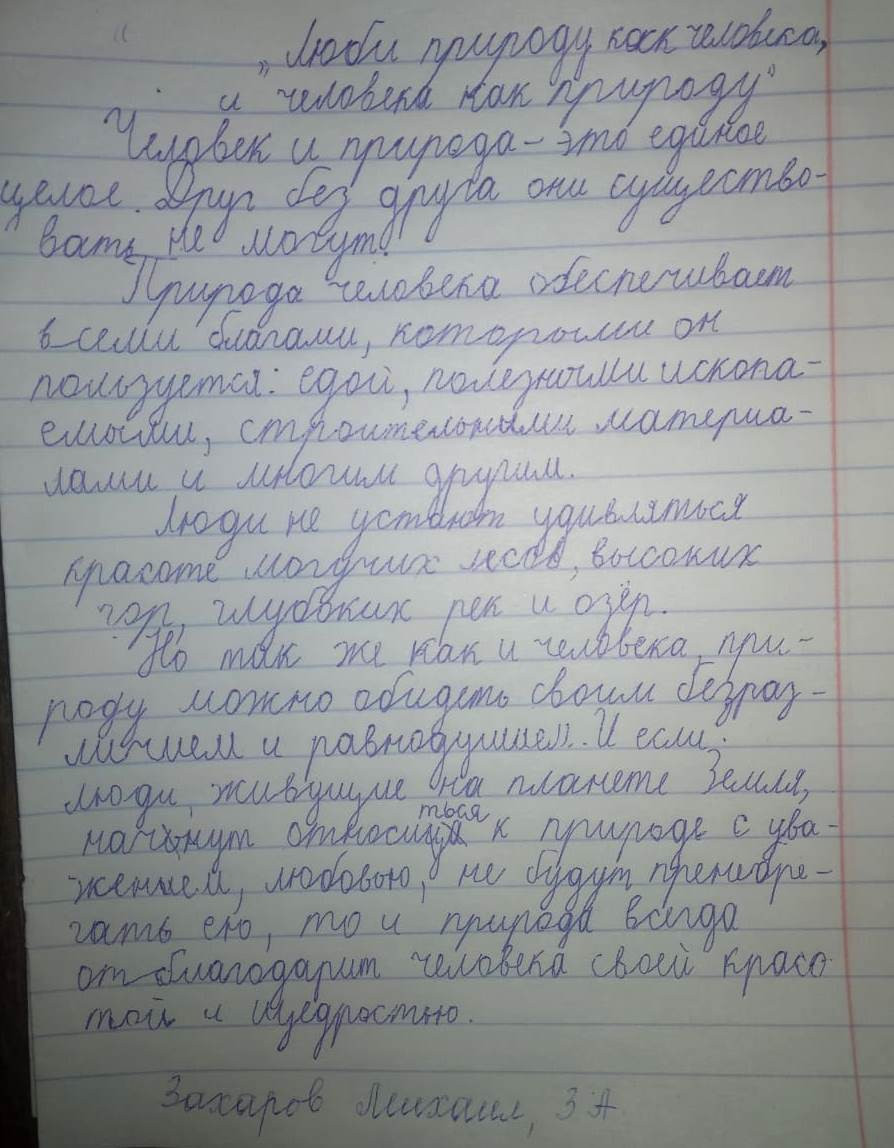 „Люби природу как человека,
и человека как природу"
Человек и природа - это единое
целое. Друг без друга они существо-
вать не могут.
Природа человека обеспечивает
всеми благами, которыми он
пользуется: едой, полезными ископа-
емыми, строительными материа-
лами и многим другим.
Люди не устают удивляться
красоте могучих лесов, высоких
гор, глубоких рек и озёр.
Но так же как и человека, при-
роду можно обидеть своим безраз-
личием и равнодушием. И если
люди, живущие на планете Земля,
начнут относиться к природе с ува-
жением, любовью, не будут пренебре-
гать ею, то и природа всегда
отблагодарит человека своей красо
той и щедростью.
Захаров Михаил, 3 А